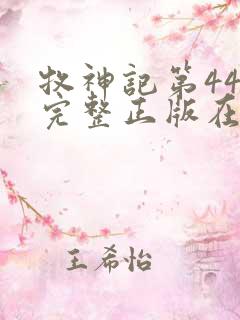 牧神記第44
完整正版在
王希怡